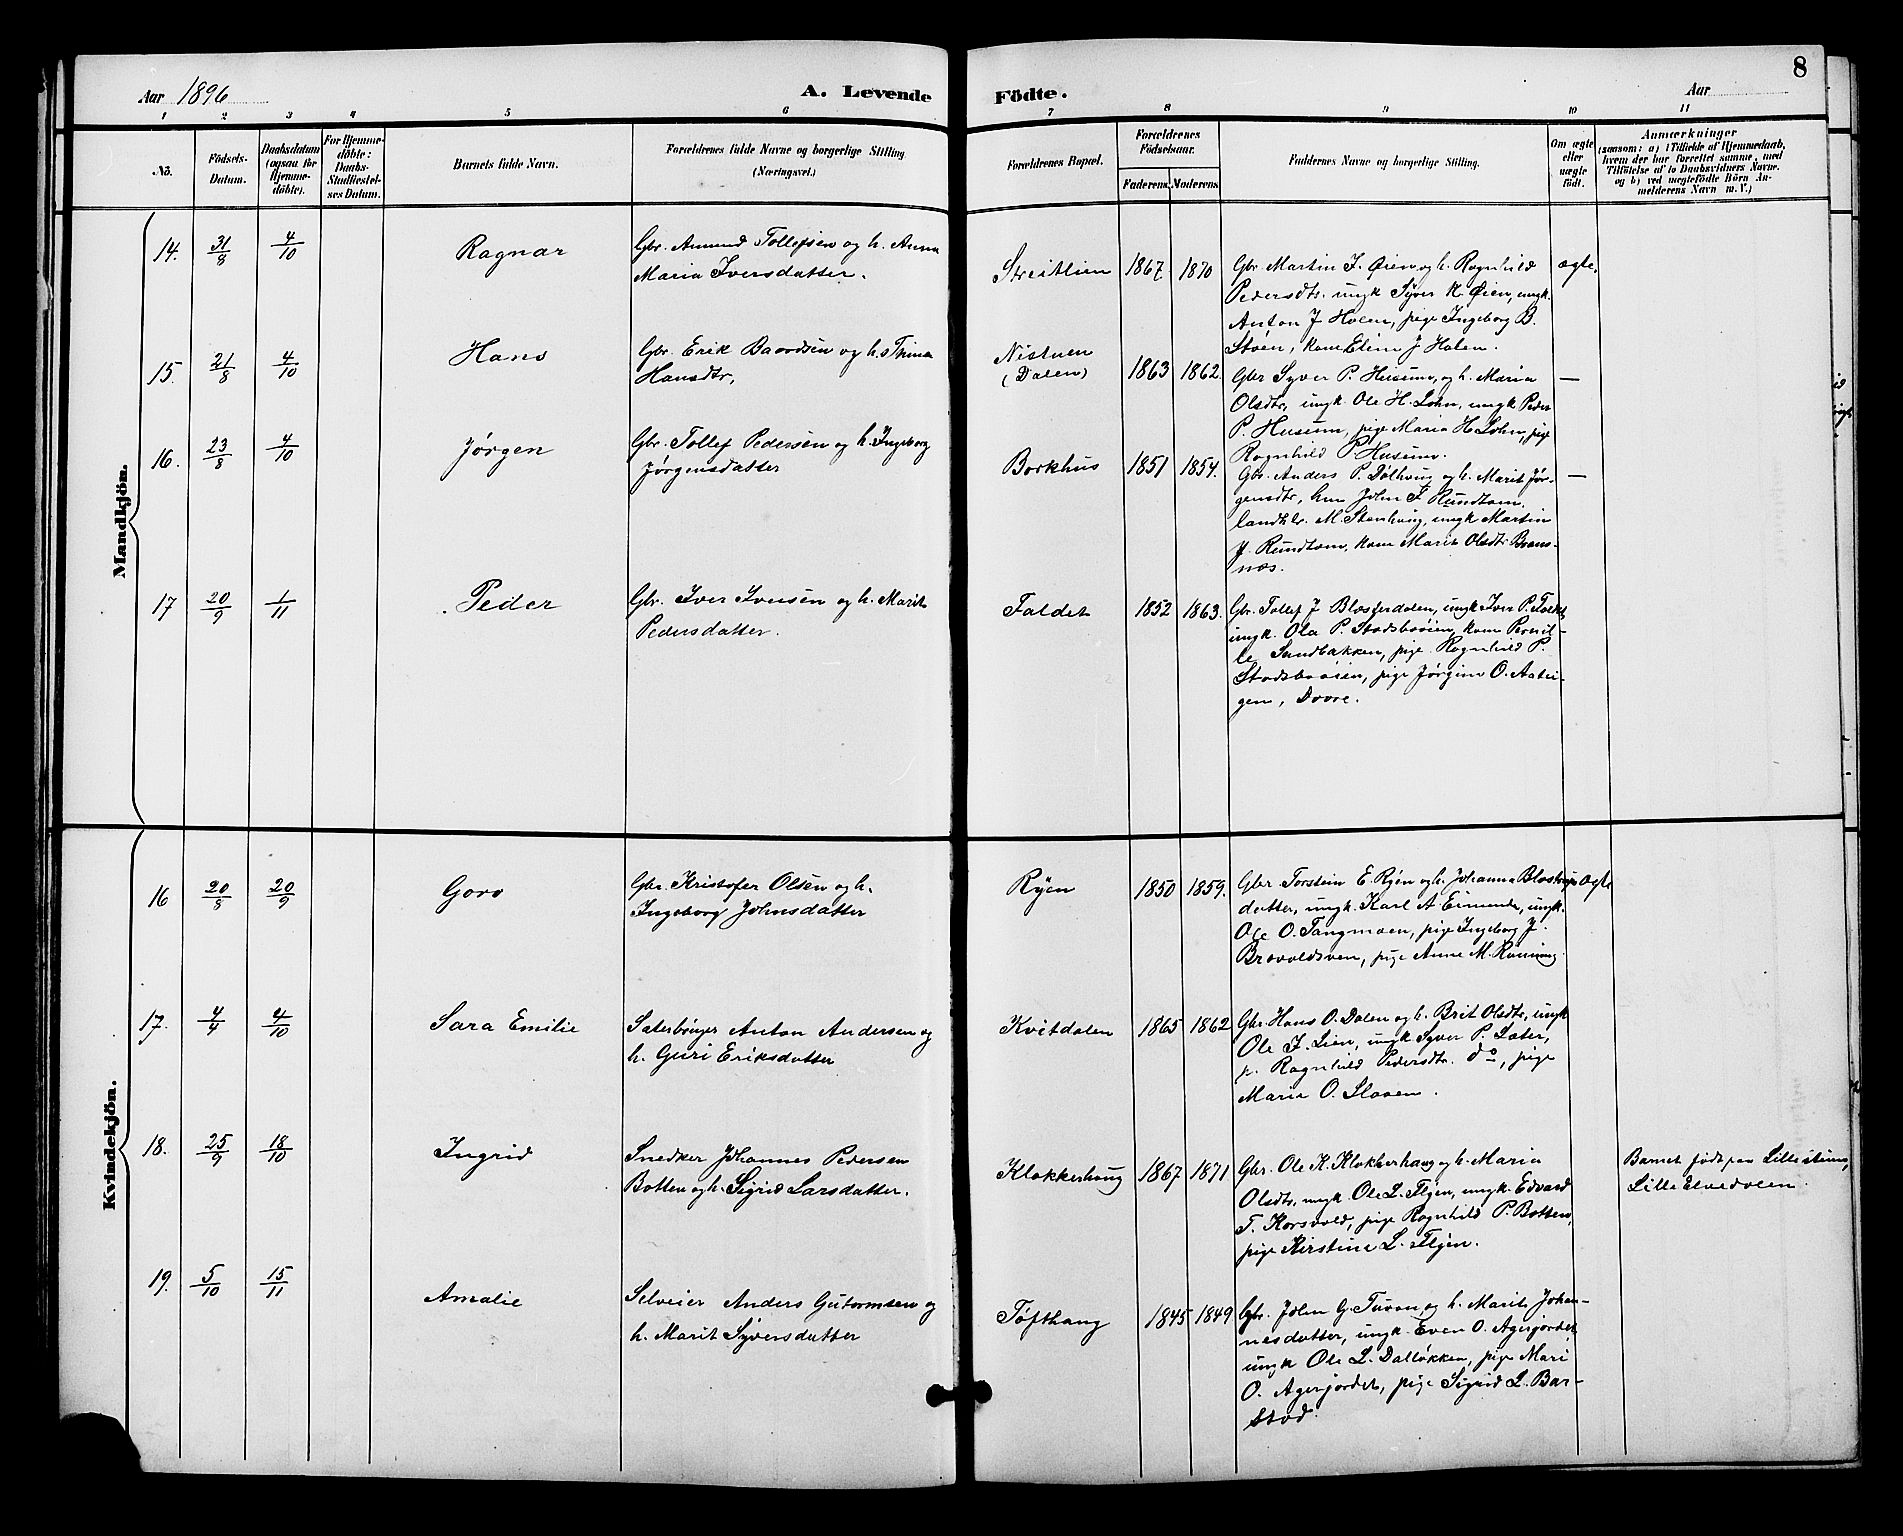 8
Aar 1896
A. Levende
Födte.
Aar
1 2 3 4 5 6 7 8 9 10 11
No.
Födsels-
Datum.
Daabsdatum
(ogsaa for
Hjemme-
döbte).
For Hjemme-
döbte:
Daabs-
Stadfæstel-
ses Datum.
Barnets fulde Navn.
Forældrenes fulde Navne og borgerlige Stilling
(Næringsvei.)
Forældrenes Bopæl.
Forældrenes
Födselsaar.
Faderens. Moderens.
Faddernes Navne og borgerlige Stilling.
Om ægte
eller
uægte
født.
Anmærkninger
(saasom: a) i Tilfælde af Hjemmedaab,
hvem der har forrettet samme, med
Tilföielse af to Daabsvidners Navne.
og b) ved uægtefödte Börn An-
melderens Navn m. V.)
Mandkjön.
14. 31/8 4/10 Ragnar
Gbr. Amund Tollefsen og h. Anna
Maria Iversdatter.
Streitlien 1867 1870
Gbr Martin J. Øien og h. Ragnhild
Pedersdtr. ungk Syver K. Øien, ungk.
Anton J Holen, pige Ingeborg B.
Støen, kone Eline J Holen.
ægte.
15. 21/8 4/10 Hans
Gbr. Erik Baardsen og h. Thina
Hansdtr,
Nistuen
(Dalen) 1863 1862.
Gbr Syver P. Husum, og h. Maria
Olsdtr, ungk. Ole H. Lohn, ungk Peder
P. Husum, pige Maria H Lohn, pige
Ragnhild P. Husum.
—
16. 23/8 4/10 Jørgen
Gbr. Tollef Pedersen og h. Ingeborg
Jørgensdatter
Borkhus 1851 1854.
Gbr. Anders P. Dølhaug og h. Marit Jør-
gensdtr, hm John J Rundtom.
landhlr. M. Stenhaug, ungk Martin
J. Rundtom, kone Marit Olsdtr Brens-
næs.
—
17 20/9 1/11 Peder
Gbr. Iver Iversen og h. Marit
Pedersdatter.
Faldet 1852 1863.
Gbr. Tollef J Blæsterdalen, ungk Iver P.
ungk. Ola P. Stadsbuøien, kone Pernil-
le Sandbakken, pige Ragnhild P.
Stadsbuøien, pige Jørgine O.
gen, Dovre.
Kvindekjön.
16 20/8 20/9 Goro
Gbr. Kristofer Olsen og h.
Ingeborg Johnsdatter
Ryen 1850 1859.
Gbr Torstein E. Ryen og h. Johanna
datter, ungk. Karl A Eimunda, ungk.
Ole O. Tangmoen, pige Ingeborg J.
Bravoldsven, pige Anne M. Rønning
ægte
17. 4/4 4/10 Sara Emilie
Sæterbruger Anton Andersen og
h. Guri Eriksdatter
Kvitdalen 1865 1862
Gbr. Hans O. Dalen og h. Brit Olsdtr, ungk
Ole J. Lien, ungk Syver P. Sæter,
p. Ragnhild Pedersdtr. do, pige
Marie O. Slaaen.
18. 25/9 18/10 Ingrid
Snedker Johannes Pedersen
Botten og h. Sigrid Larsdatter.
Klokkerhaug 1867 1871
Gbr. Ole K. Klokkerhaug og h. Maria
Olsdtr, ungk. Ole L. Flyen, ungk. Edvard
T. Korsvold, pige Ragnhild P. Botten,
pige Kirstine L. Flyen.
Barnet født paa Lillestuen,
Lille Elvedalen.
19. 5/10 15/11 Amalie
Selveier Anders Gutormsen og
h. Marit Syversdatter
Tøfthaug 1845 1849
Gbr. John G. Turen og h. Marit Johan-
nesdatter, ungk. Even O. Agerjordet,
ungk Ole L. Dalløkken, pige Mari
O. Agerjordet, pige Sigrid L. Bar-
stad.